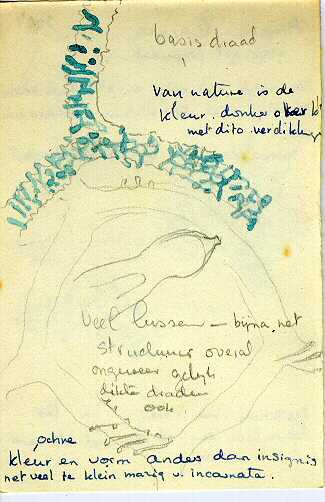 basis draad
van nature is de
kleur donker oker
met dito verdikking
veel lussen — bijna net
structuur overal
ongeveer gelijk
dikke draden
ook
ochre
kleur en vorm anders dan insignis
net veel te klein marig v. incarnata.